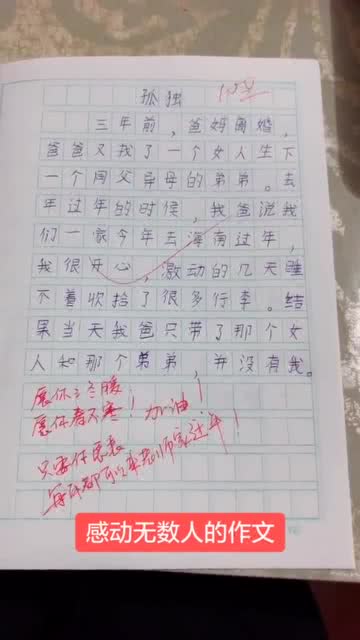 孤独
三年前，爸妈离婚，
爸爸又找了一个女人生下
一个同父异母的弟弟。去
年过年的时候，我爸说我
们一家今年去海南过年，
我很开心，激动的几天睡
不着收拾了很多行李。结
果当天我爸只带了那个女
人和那个弟弟，并没有我。
愿你三冬暖
愿你春不寒！加油！
只要你愿意
每年都可以来老师家过年！
感动无数人的作文